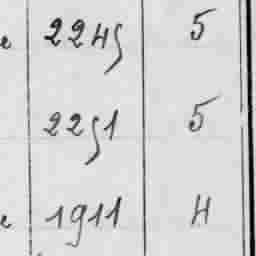 e 2245 5
2251 5
e 1911 4